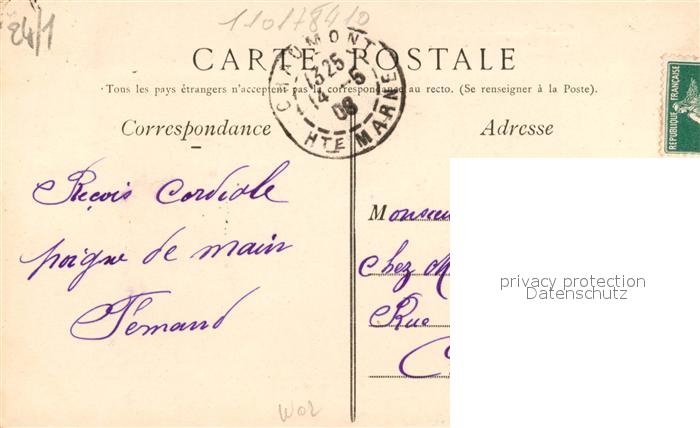 24/1
110178410
CARTE POSTALE
Tous les pays étrangers n'acceptent pas la correspondance au recto. (Se renseigner à la Poste).
CHAUMONT
1325
14-5
08
HTE MARNE
REPUBLIQUE FRANÇAISE
Correspondance
Adresse
Reçois Cordiale
poigne de main
Fernand
Monsieu
Chez M
Rue
C
privacy protection
Datenschutz